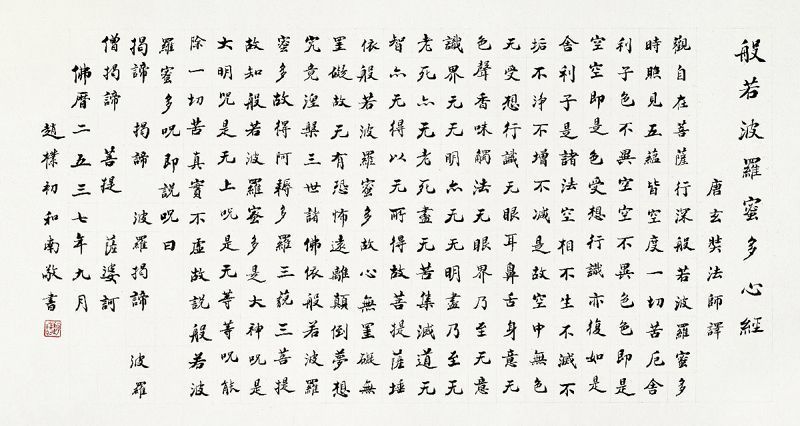 般若波羅蜜多心經
唐玄奘法師譯
觀自在菩薩行深般若波羅蜜多
時照見五蘊皆空度一切苦厄舍
利子色不異空空不異色色即是
空空即是色受想行識亦復如是
舍利子是諸法空相不生不滅不
垢不净不增不减是故空中無色
无受想行識无眼耳鼻舌身意无
色聲香味觸法无眼界乃至无意
識界无无明亦无无明盡乃至无
老死亦无老死盡无苦集滅道无
智亦无得以无所得故菩提薩埵
依般若波羅蜜多故心無罣礙無
罣礙故无有恐怖遠離顛倒夢想
究竟涅槃三世諸佛依般若波羅
蜜多故得阿耨多羅三藐三菩提
故知般若波羅蜜多是大神呪是
大明呪是无上呪是无等等呪能
除一切苦真實不虛故説般若波
羅蜜多呪即説呪曰
揭諦 揭諦 波羅揭諦 波羅
僧揭諦 菩提 薩婆訶
佛曆二五三七年九月
趙樸初和南敬書